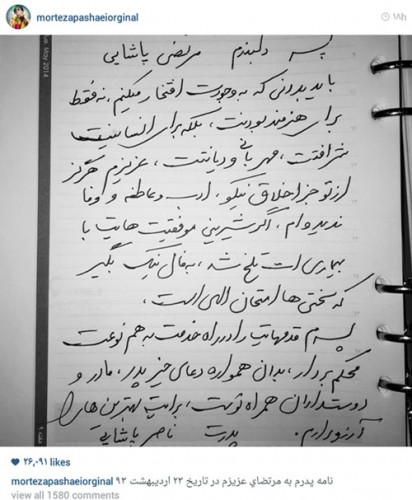 mortezapashaeiorginal
۱۸h
May 2014
پسر دلبندم مرتضی پاشایی
باید بدونی که به وجودت افتخار میکنم، نه فقط
برای هنرمند بودنت، بلکه برای انسانیت
شرافتت، مهربانی و دیانتت، عزیزم هرگز
از تو جز اخلاق نیکو، ادب و عاطفه و وفا
ندیده‌ام، اگر شیرینی موفقیت هایت با
بیماری ات تلخ شد، به فال نیک بگیر
که سختی ها امتحان الهی است.
پسرم قدمهایت را در راه خدمت به هم نوعت
محکم بردار، بدان همواره دعای خیر پدر، مادر و
دوستداران همراه توست، برایت بهترین ها را
آرزو دارم. پدرت ناصر پاشایی
۲۶,۰۹۱ likes
mortezapashaeiorginal نامه پدرم به مرتضاي عزیزم در تاریخ ۲۳ اردیبهشت ۹۳
view all 1580 comments